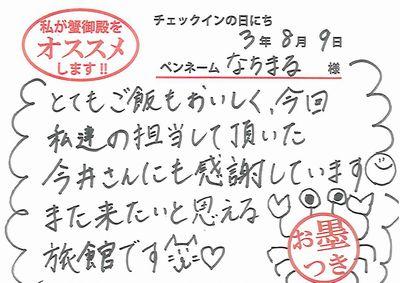 私が蟹御殿を
オススメ
します!!
チェックインの日にち
3年8月9日
ペンネーム なちまる 様
とてもご飯もおいしく、今回
私達の担当して頂いた
今井さんにも感謝しています
また来たいと思える
旅館です
お墨
つき